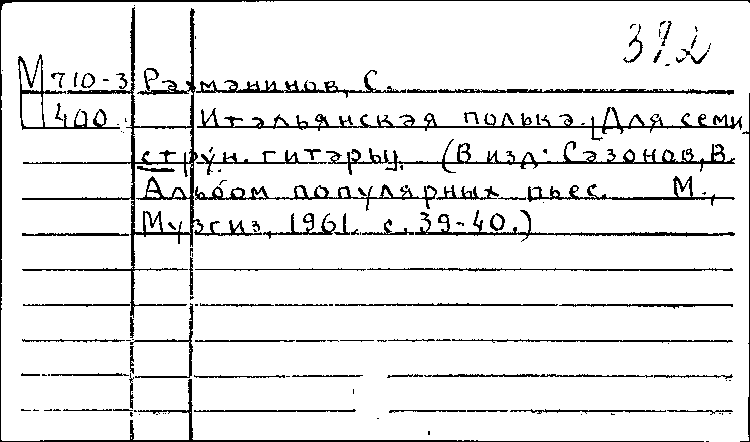 39.2
М 710-3 Рахманинов, С.
400 Итальянская полька. [Для семи
струн. гитары]. (В изд: Сазонов, В.
Альбом популярных пьес. М.,
Музгиз, 1961. с. 39-40.)